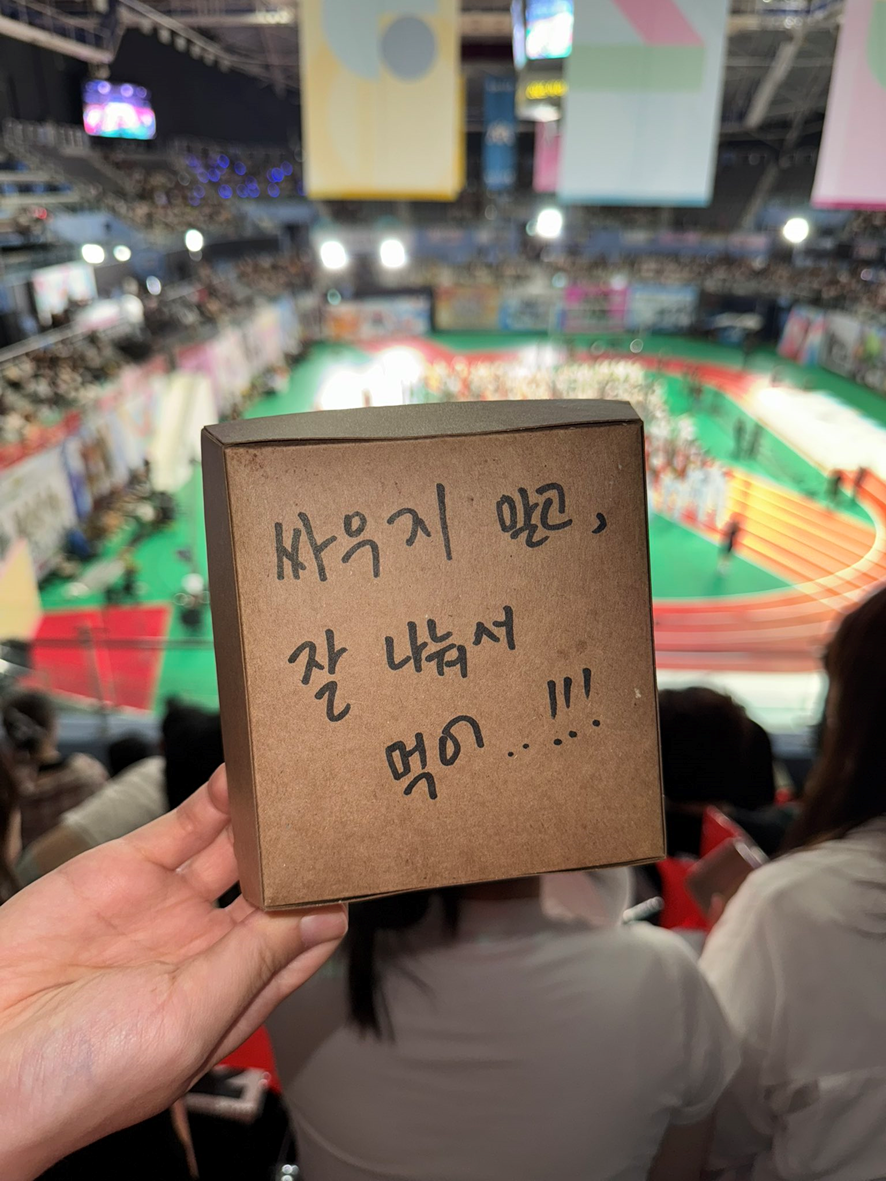 싸우지 말고,
잘 나눠서
먹어..!!!